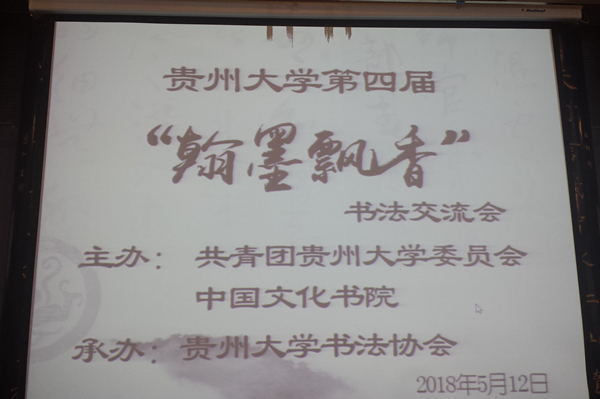 贵州大学第四届
“翰墨飘香”
书法交流会
主办：共青团贵州大学委员会
中国文化书院
承办：贵州大学书法协会
2018年5月12日